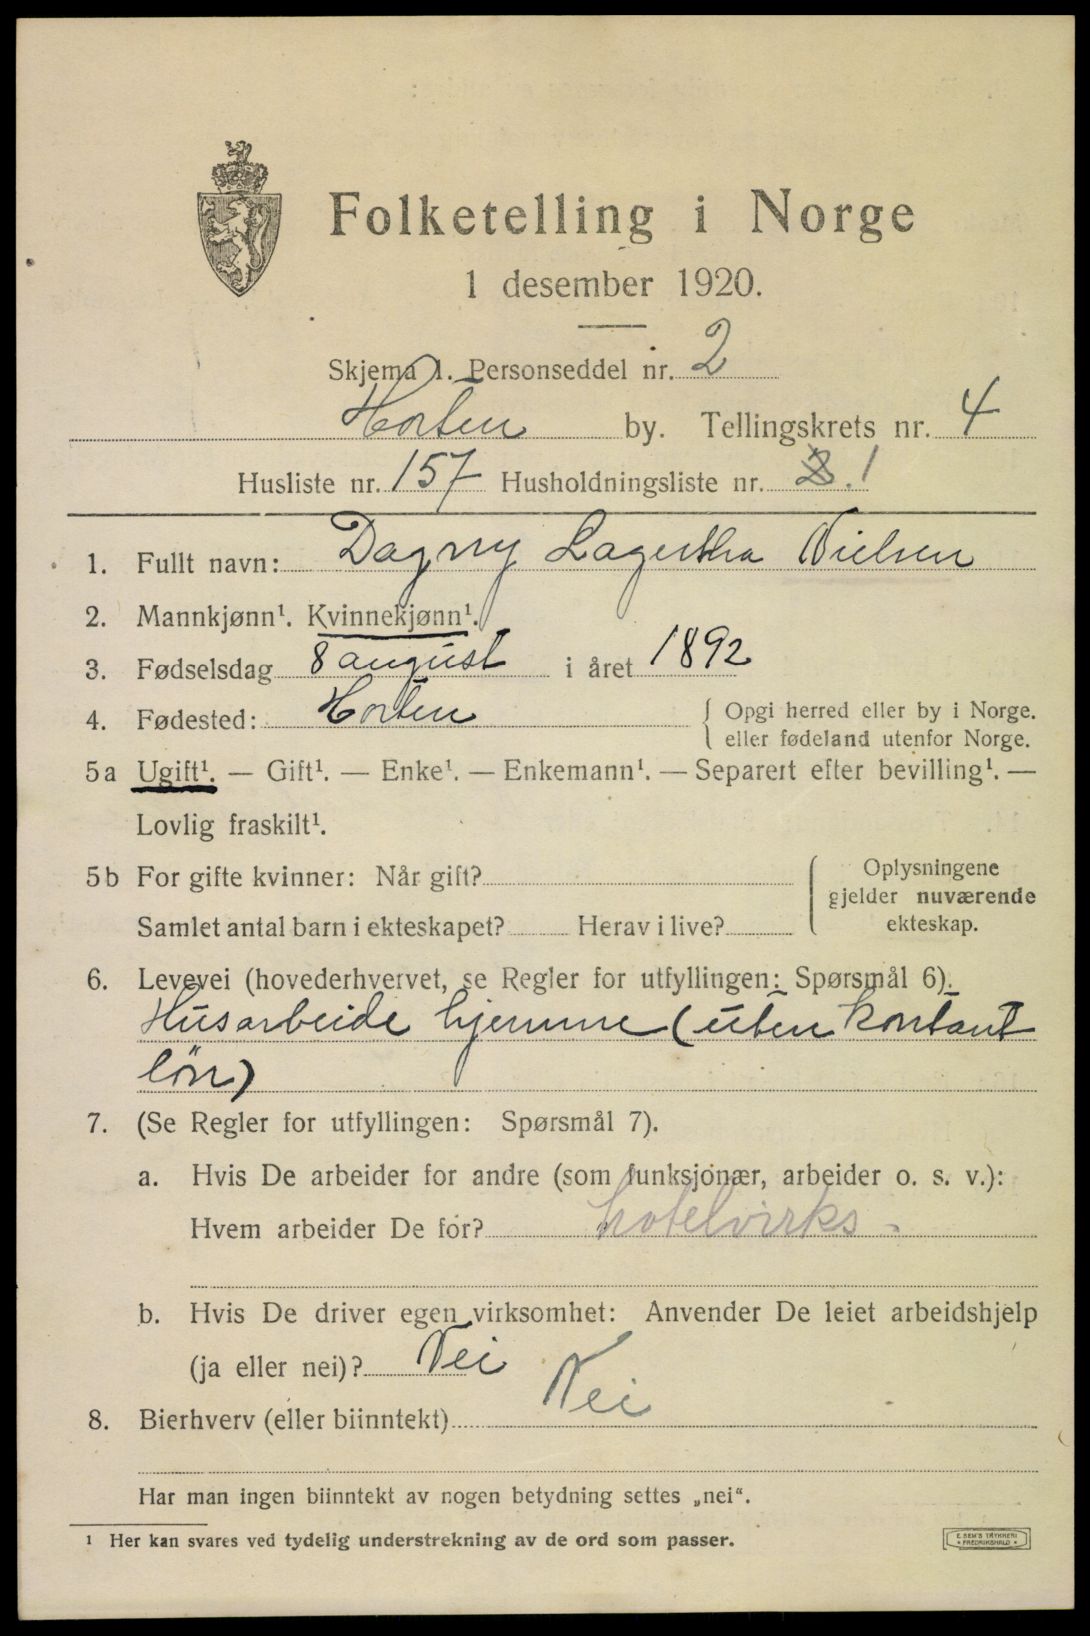 Folketelling i Norge
1 desember 1920.
Skjema 1. Personseddel nr. 2
Horten by. Tellingskrets nr. 4
Husliste nr. 157 Husholdningsliste nr. 1
1. Fullt navn: Dagny Lagertha Nielsen
2. Mannkjønn¹. Kvinnekjønn¹.
3. Fødselsdag 8 august i året 1892
4. Fødested: Horten
{ Opgi herred eller by i Norge.
eller fødeland utenfor Norge.
5a Ugift¹. — Gift¹. — Enke¹. — Enkemann¹. — Separert efter bevilling¹. —
Lovlig fraskilt¹.
5b For gifte kvinner: Når gift?
Samlet antal barn i ekteskapet? Herav i live?
{ Oplysningene
gjelder nuværende
ekteskap.
6. Levevei (hovederhvervet, se Regler for utfyllingen: Spørsmål 6).
Husarbeide hjemme (uten kontant
løn)
7. (Se Regler for utfyllingen: Spørsmål 7).
a. Hvis De arbeider for andre (som funksjonær, arbeider o. s. v.):
Hvem arbeider De for? hotelvirks.
b. Hvis De driver egen virksomhet: Anvender De leiet arbeidshjelp
(ja eller nei)? Nei
8. Bierhverv (eller biinntekt) Nei
Har man ingen biinntekt av nogen betydning settes „nei“.
¹ Her kan svares ved tydelig understrekning av de ord som passer.
E. SEM'S TRYKKERI
• FREDRIKSHALD •